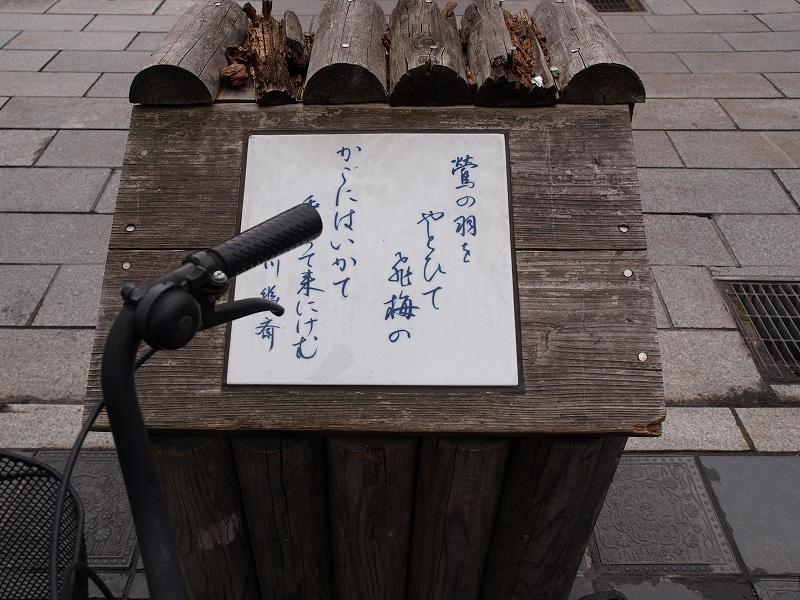 鶯の羽を
やとひて
飛梅の
かごにはいかて
て来にけむ
川 斎